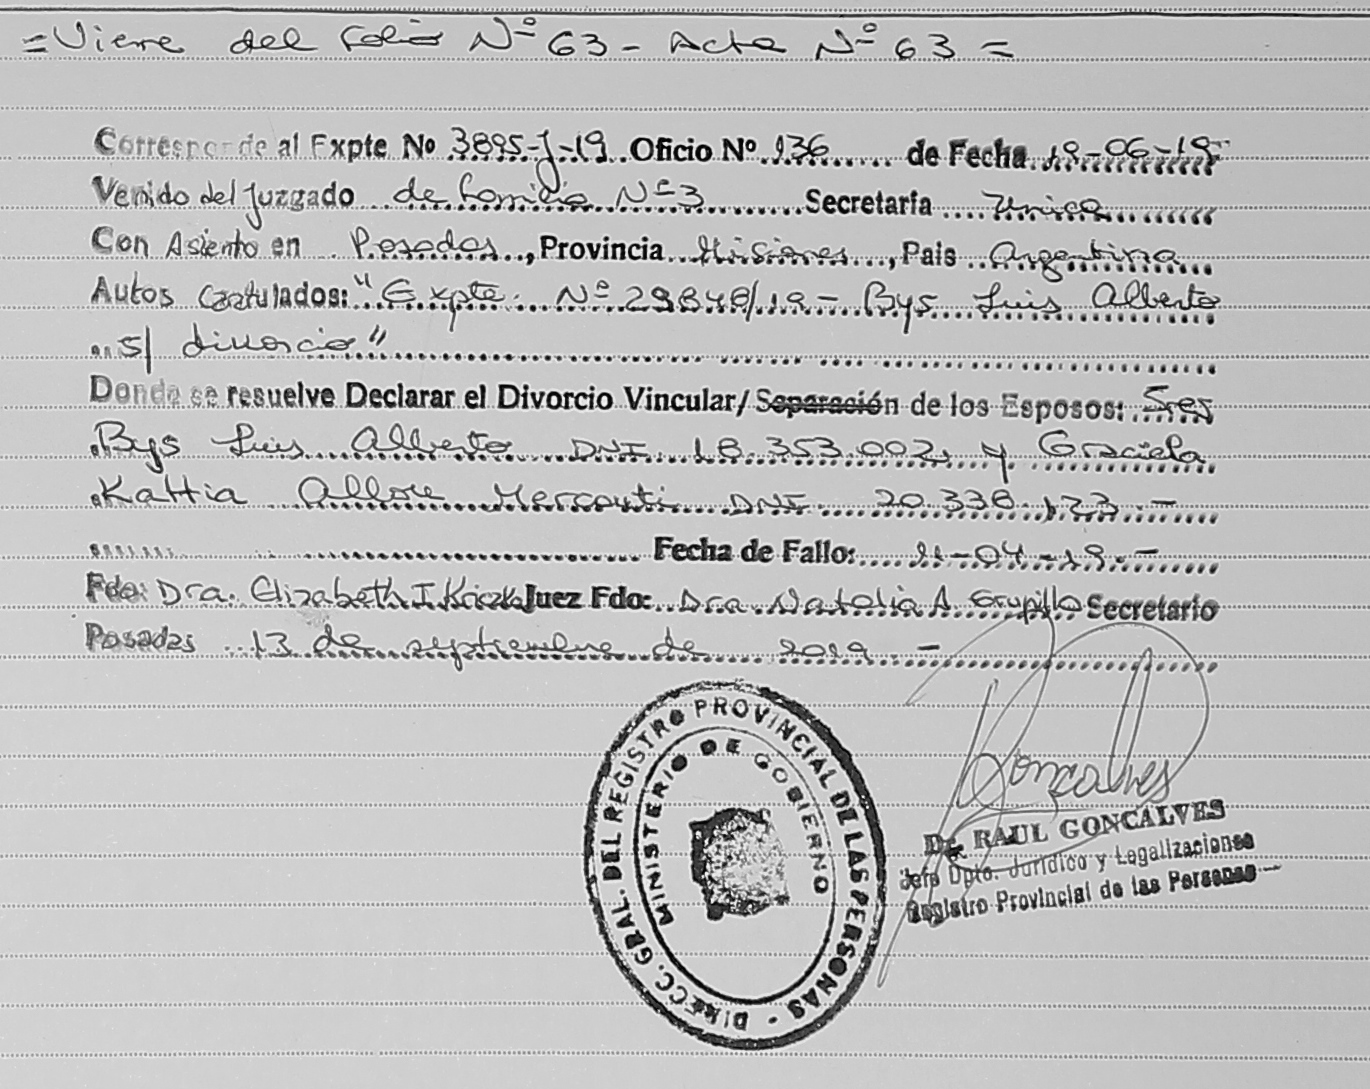 =Viene del folio Nº 63 - Acta Nº 63 =
Corresponde al Expte No 3895-J-19 Oficio Nº 136 de Fecha 18-06-19
Venido del Juzgado de Familia Nº 3 Secretaría Unica
Con Asiento en Posadas, Provincia Misiones, Pais Argentina
Autos Caratulados: "Expte. Nº 29848/19 - Bys Luis Alberto
s/ divorcio"
Donde se resuelve Declarar el Divorcio Vincular/ Separación de los Esposos: Sres
Bys Luis Alberto DNI 18.353.002, y Graciela
Kattia DNI 20.338.123.-
Fecha de Fallo: 11-04-19.-
Fdo: Dra. Elizabeth I. Juez Fdo: Dra. Natalia A Secretario
Posadas 13 de septiembre de 2019 -
DIRECC. GRAL. DEL REGISTRO PROVINCIAL DE LAS PERSONAS -
MINISTERIO DE GOBIERNO
Goncalves
Dr. RAUL GONCALVES
Jefe Dpto. Jurídico y Legalizaciones
Registro Provincial de las Personas